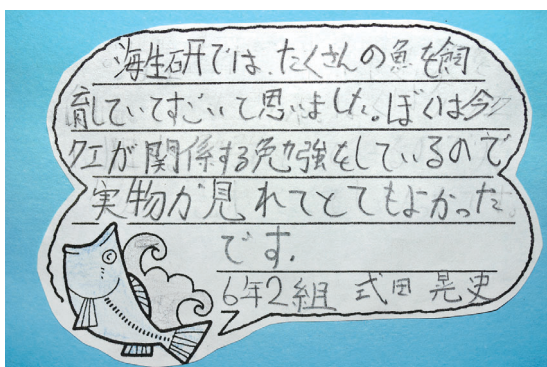 海生研では、たくさんの魚を飼
育していてすごいて思いました。ぼくは今
クエが関係する勉強をしているので
実物が見れてとてもよかった
です.
6年2組 式田 晃史